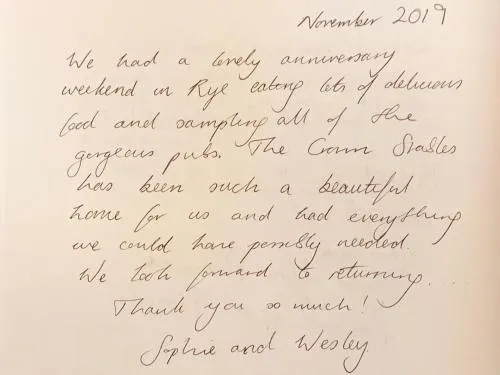 November 2019
We had a lovely anniversary
weekend in Rye eating lots of delicious
food and sampling all of the
gorgeous pubs. The Crown Stables
has been such a beautiful
home for us and had everything
we could have possibly needed.
We look forward to returning...
Thank you so much!
Sophie and Wesley